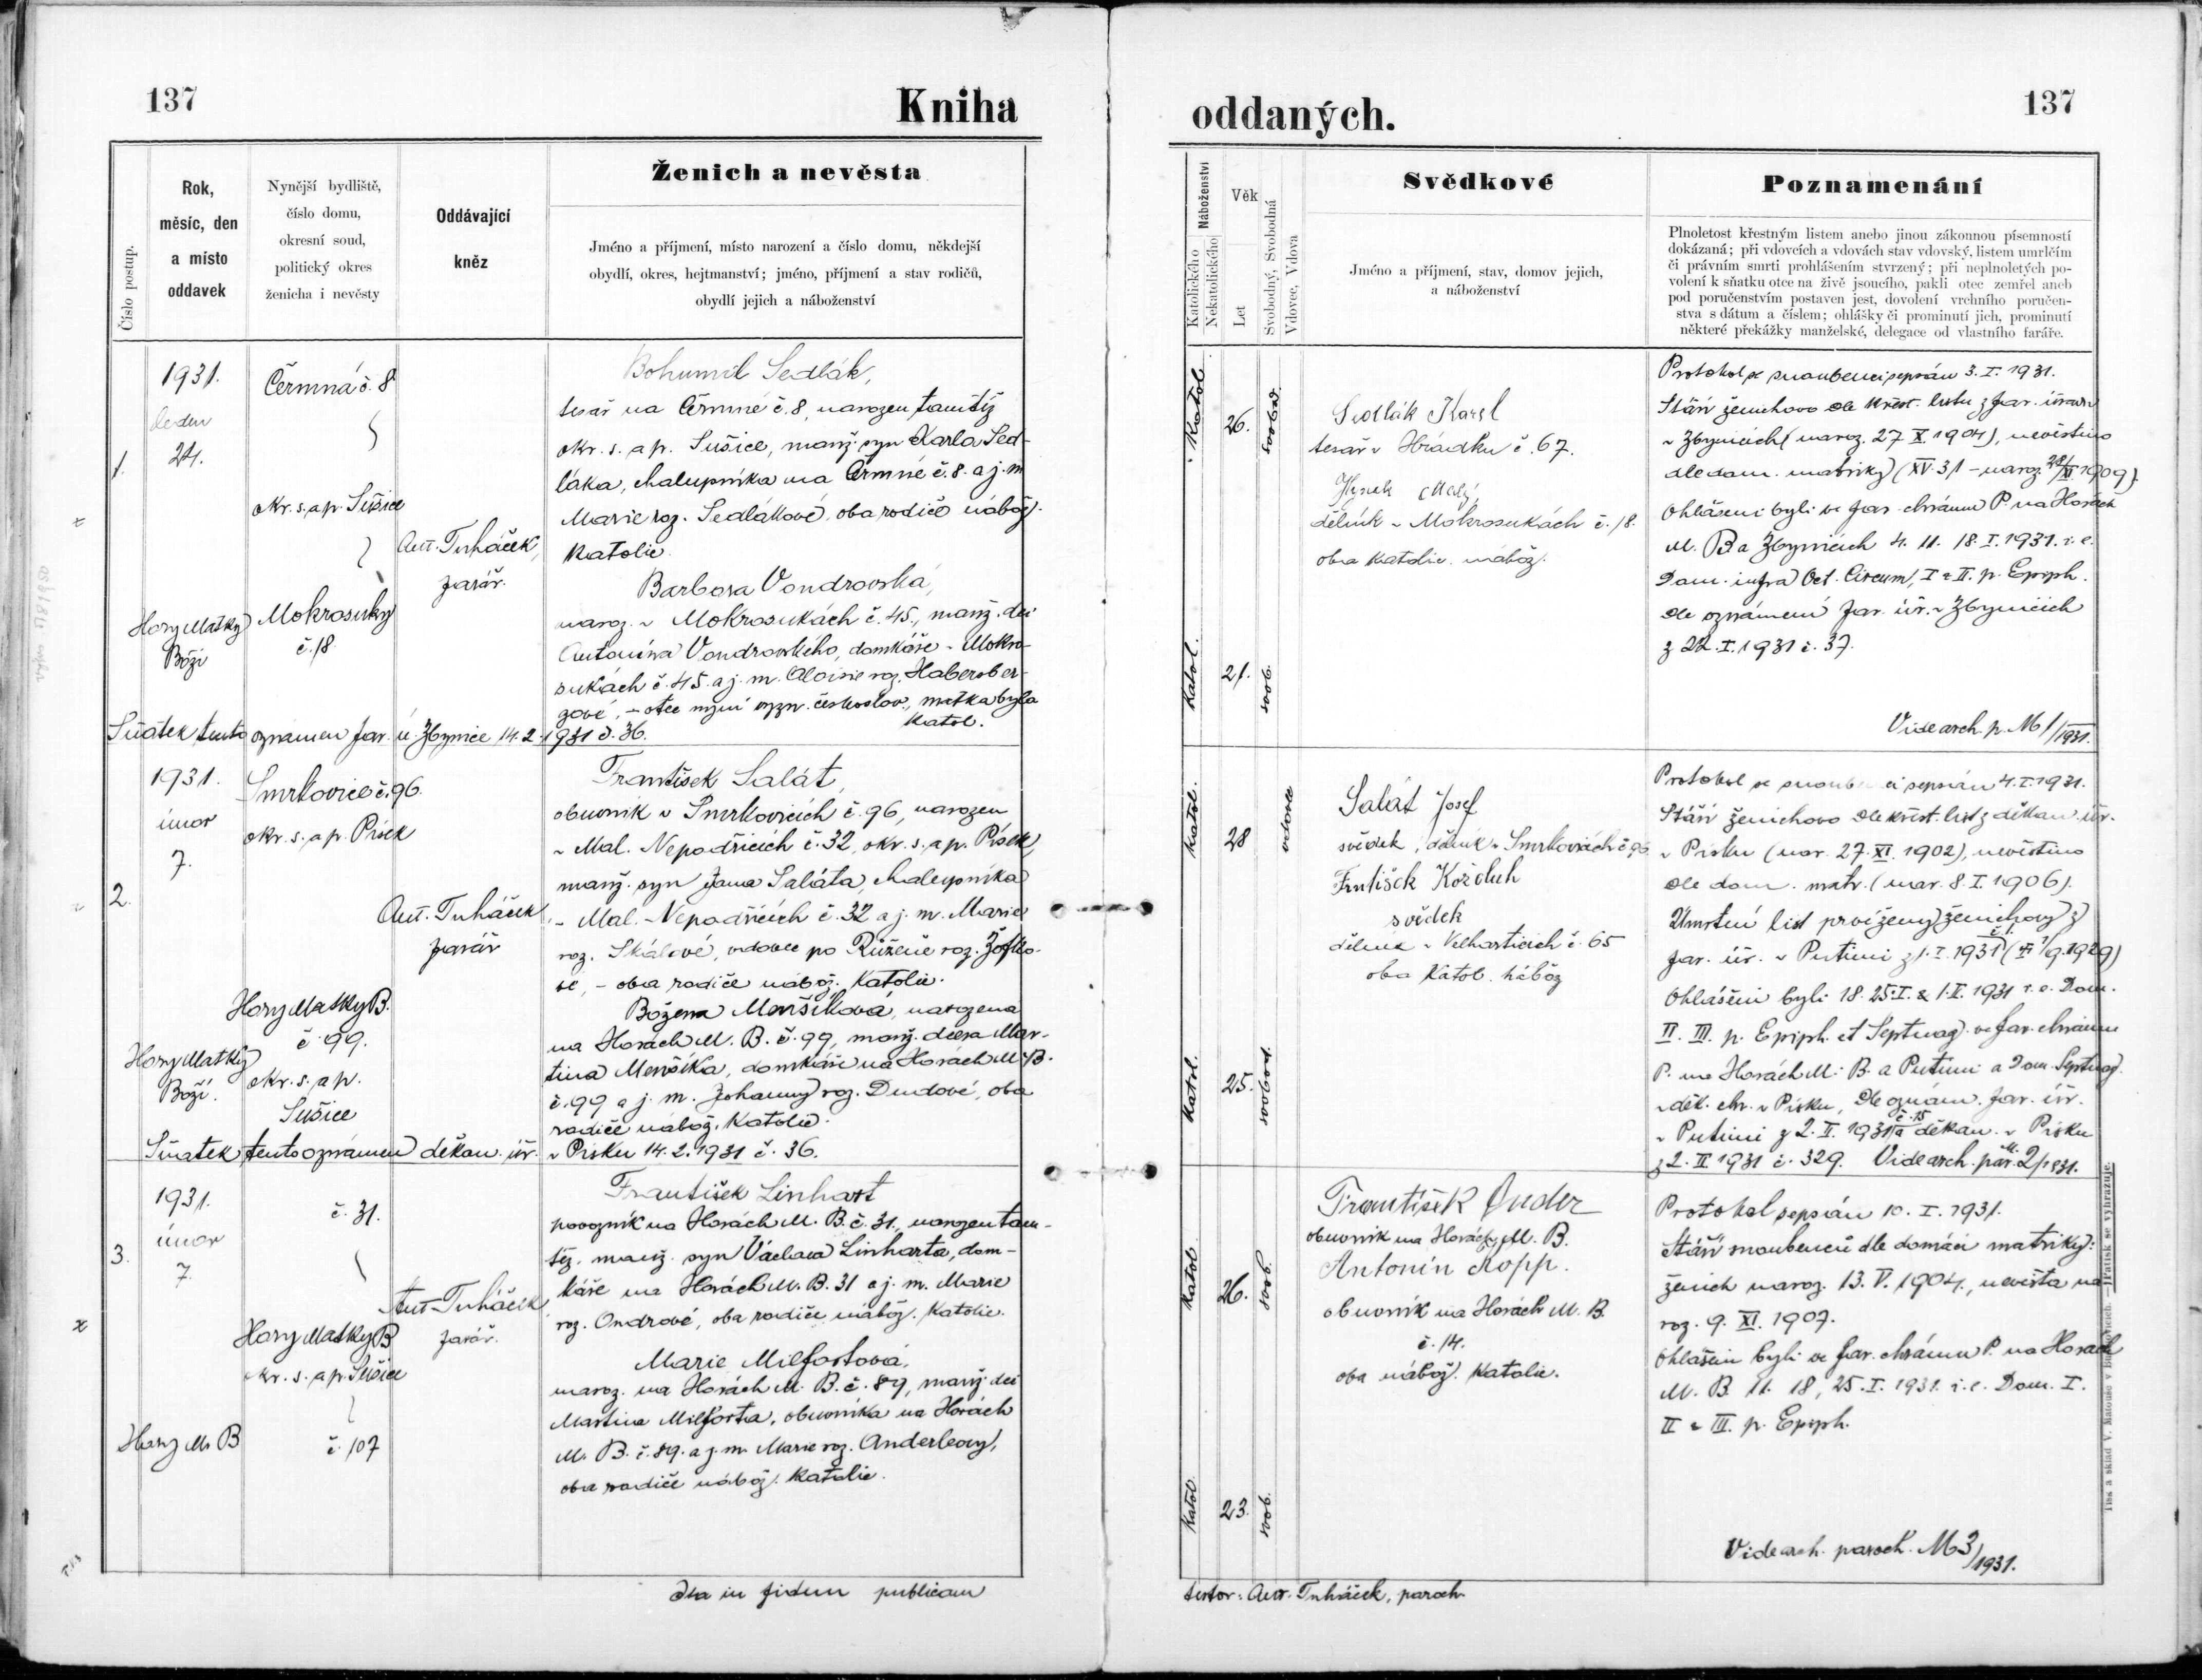 137
Kniha
oddaných.
137
Číslo postup.
Rok,
měsíc, den
a místo
oddavek
Nynější bydliště,
číslo domu,
okresní soud,
politický okres
ženicha i nevěsty
Oddávající
kněz
Ženich a nevěsta
Jméno a příjmení, místo narození a číslo domu, někdejší
obydlí, okres, hejtmanství; jméno, příjmení a stav rodičů,
obydlí jejich a náboženství
Náboženství
Katolického
Nekatolického
Věk
Let
Svobodný, Svobodná
Vdovec, Vdova
Svědkové
Jméno a příjmení, stav, domov jejich,
a náboženství
Poznamenání
Plnoletost křestným listem anebo jinou zákonnou písemností
dokázaná; při vdovcích a vdovách stav vdovský, listem umrlčím
či právním smrti prohlášením stvrzený; při neplnoletých po-
volení k sňatku otce na živě jsoucího, pakli otec zemřel aneb
pod poručenstvím postaven jest, dovolení vrchního poručen-
stva s dátum a číslem; ohlášky či prominutí jich, prominutí
některé překážky manželské, delegace od vlastního faráře.
1.
1931.
leden
24.
Hory Matky
Boží
Čermná č. 8
okr. s. a p. Sušice
Mokrosuky
č. 18
Ant. Tuháček,
farář.
Bohumil Sedlák,
tesař na Čermné č. 8, narozen tamtéž
okr. s. a p. Sušice, manž. syn Karla Sed-
láka, chalupníka na Čermné č. 8. a j. m.
Marie roz. Sedlákové, oba rodiče nábož.
katolic.
Barbora Vondrovská,
naroz. v Mokrosukách č. 45., manž. dci
Antonína Vondrovského, domkáře v Mokro-
sukách č. 45. a j. m. Aloisie roz. Habersber-
gové, – otec nyní vyzn. českoslov., matka byla
katol.
Sňatek tento oznámen far. ú. Zbynice 14. 2. 1931 č. 36.
Katol.
26.
svobod.
Katol.
21.
svob.
Sedlák Karel
tesař v Hrádku č. 67.
Hynek Malý,
dělník v Mokrosukách č. 18.
oba katolic. nábož.
Protokol se snoubenci sepsán 3. I. 1931.
Stáří ženichovo dle křest. listu z far. úřadu
v Zbynicích (naroz. 27. X. 1904), nevěstino
dle dom. matriky (XV. 31 – naroz. 1909).
Ohlášeni byli ve far. chrámu P. na Horách
M. B. a Zbynicích 4. 11. 18. I. 1931. i. e.
Dom. infra Oct. Circum, I a II. p. Epiph.
dle oznámení far. úř. v Zbynicích
z 22. I. 1931 č. 37.
Vide arch. p. M 1/1931.
2.
1931.
únor
7.
Hory Matky
Boží.
Smrkovice č. 96.
okr. s. a p. Písek
Hory Matky B.
č. 99.
okr. s. a p.
Sušice
Ant. Tuháček,
farář
František Salát,
obuvník v Smrkovicích č. 96, narozen
v Mal. Nepodřicích č. 32, okr. s. a p. Písek,
manž. syn Jana Saláta, chalupníka
v Mal. Nepodřicích č. 32 a j. m. Marie
roz. Skálové, vdovec po Růženě roz.
– oba rodiče nábož. katolic.
Božena Menšíková, narozena
na Horách M. B. č. 99, manž. dcera Mar-
tina Menšíka, domkáře na Horách M. B.
č. 99 a j. m. Johanny roz. Dudové, oba
rodiče nábož. katolic.
Sňatek tento oznámen děkan. úř. v Písku 14. 2. 1931 č. 36.
Katol.
28
vdovec
Katol.
25.
svobod.
Salát Josef
svědek, dělník v Smrkovicích č 96
Frntišek Kožoluh
svědek
dělník v Velharticích č. 65
oba Katol. nábož
Protokol se snoubenci sepsán 4. I. 1931.
Stáří ženichovo dle křest. list z děkan. úř.
v Písku (nar. 27. XI. 1902), nevěstino
dle dom. matr. (nar. 8. I. 1906).
Úmrtní list prvé ženy ženichovy z
far. úř. v Putimi z 1. I. 1931
Ohlášeni byli 18. 25. I. & 1. II. 1931 i. e. Dom.
II. III. p. Epiph. et Septuag. ve far. chrámu
P. na Horách M. B. a Putimi a Dom. Septuag.
v děk. chr. v Písku, dle oznám. far. úř.
v Putimi z 2. II. 1931 č. 15 a děkan. v Písku
z 2. II. 1931 č. 329. Vide arch. par. M. 2/1931.
3.
1931.
únor
7.
Hory M. B
č. 31.
Hory Matky B
okr. s. a p. Sušice
č. 107
Ant. Tuháček,
farář.
František Linhart
povozník na Horách M. B. č. 31., narozen tam-
též. manž. syn Václava Linharta, dom-
káře na Horách M. B. 31 a j. m. Marie
roz. Ondrové, oba rodiče nábož. katolic.
Marie Milfortová,
naroz. na Horách M. B. č. 89, manž. dci
Martina Milforta, obuvníka na Horách
M. B. č. 89. a j. m. Marie roz. Anderleovy,
oba rodiče nábož. katolic.
Katol.
26.
svob.
Katol.
23.
svob.
František Onder
obuvník na Horách M. B.
Antonín Kopp.
obuvník na Horách M. B.
č. 14.
oba nábož. katolic.
Protokol sepsán 10. I. 1931.
Stáří snoubenců dle domácí matriky:
ženich naroz. 13. V. 1904., nevěsta na-
roz. 9. XI. 1907.
Ohlášeni byli ve far. chrámu P. na Horách
M. B. 11. 18, 25. I. 1931. i. e. Dom. I.
II a III. p. Epiph.
Vide arch. paroch. M 3/1931.
Tisk a sklad V. Matouše v Budějovicích. — Patisk se vyhrazuje.
Ita in fidem publicam
testor: Ant. Tuháček, paroch.